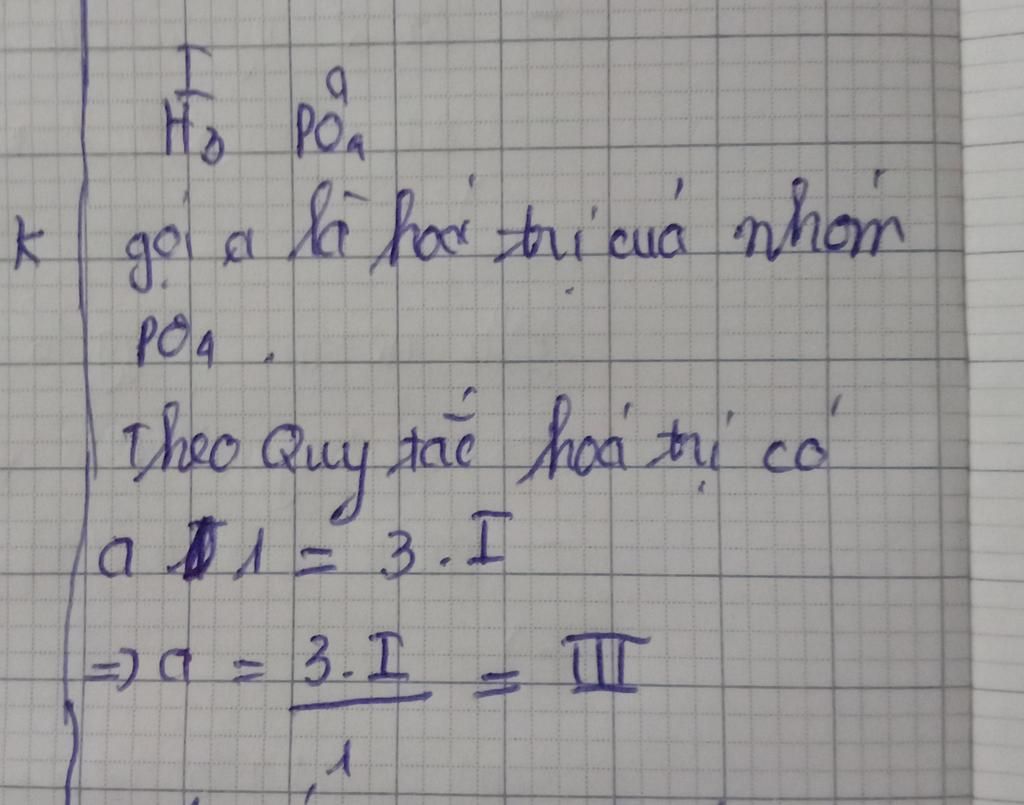 I a
H₃ PO₄
k gọi a là hoá trị của nhóm
PO₄ .
Theo Quy tắc hoá trị có
a 1 = 3 . I
=> a = 3 . I = III
1